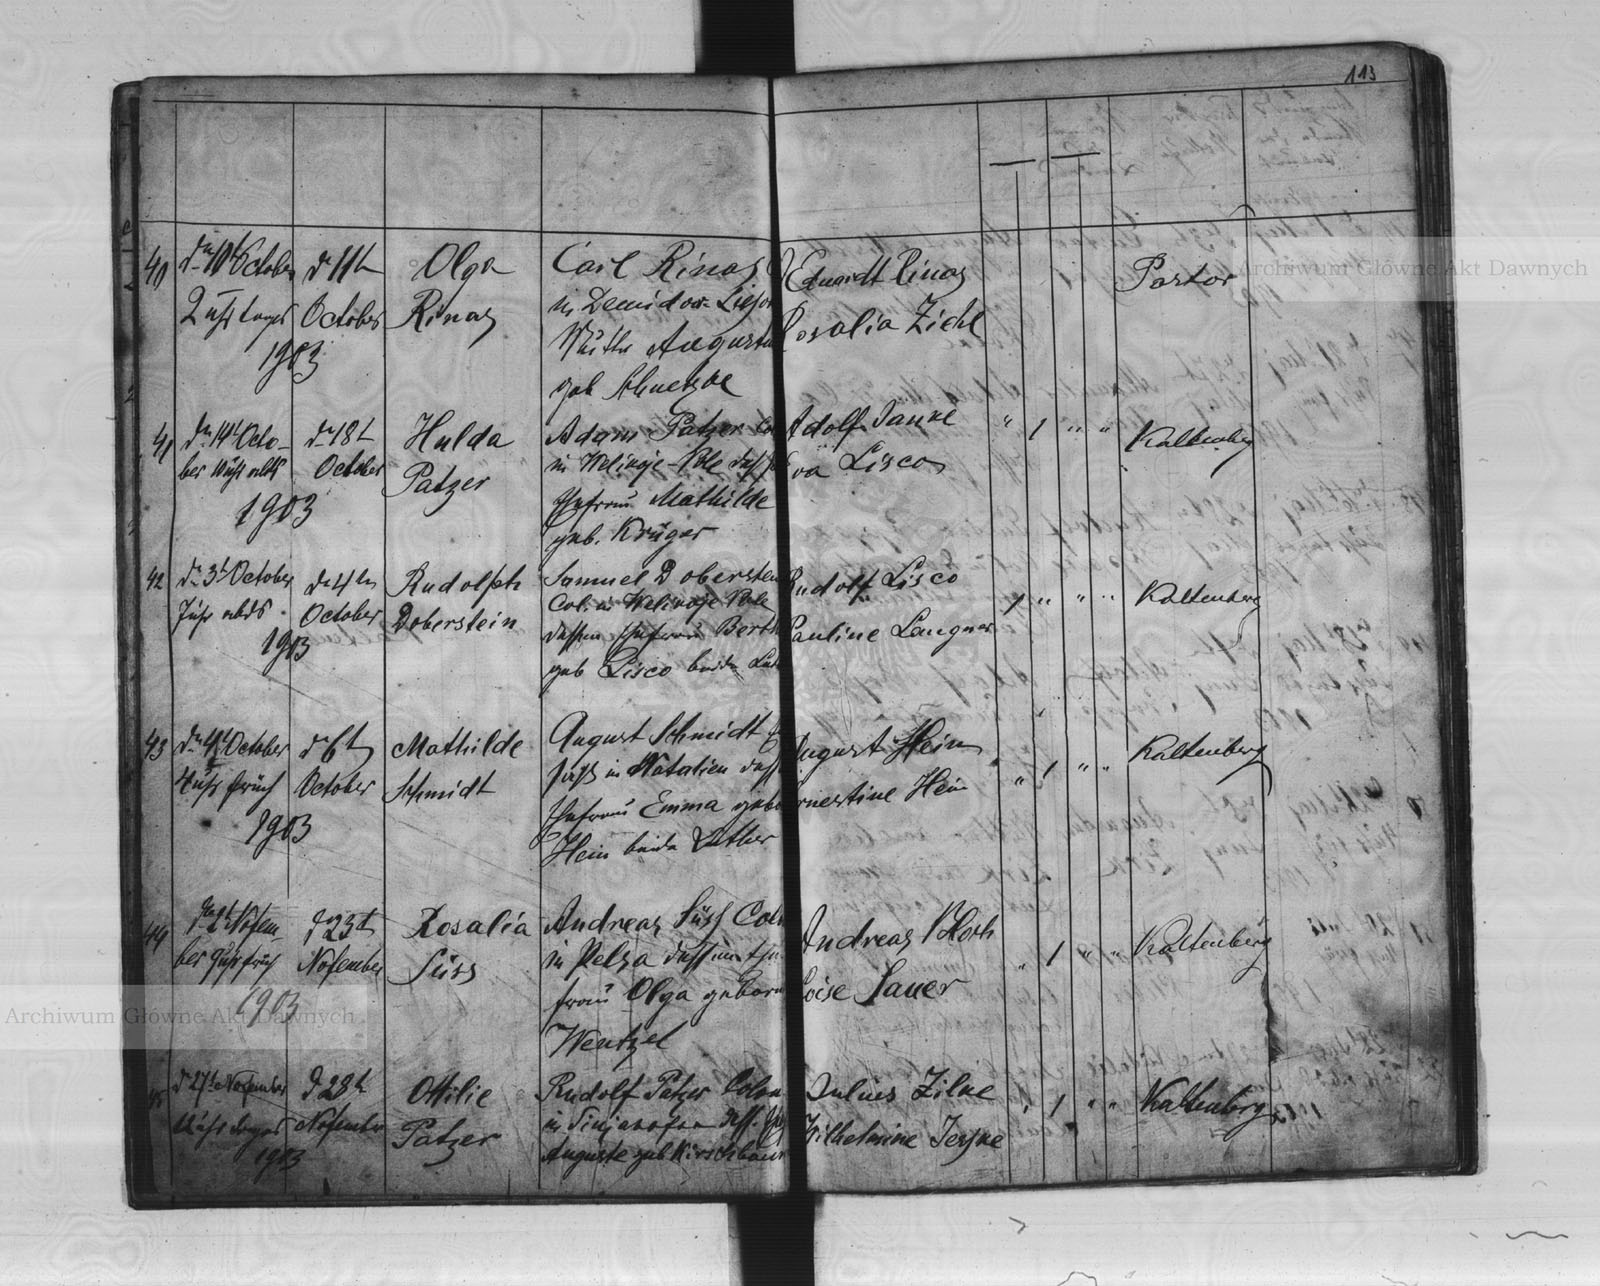 113
40
d 10t October
d 11t
Olga
Carl Rinas
Eduardt Rinas
Pastor
2 uhr tages
October
Rinas
in Demidow
Rosalia Ziehl
1903
Mutter Augusta
geb Schmetzke
41
d 14t Octo-
d 18t
Hulda
Adam Patzer Col
Adolf Janke
" 1 " "
Kaltenberg
ber uhr abds
October
Patzer
in Welikoje-Pole dess
Eva Lisco
1903
Ehefrau Mathilde
geb. Krüger
42
d 3t October
d 4tn
Rudolph
Samuel Doberstein
Rudolf Lisco
1 " " "
Kaltenberg
7 uhr abds
October
Doberstein
Col. in Welikoje Pole
Pauline Langner
1903
dessen Ehefrau Berth
geb Lisco beide Luth
43
d 4t October
d 6t
Mathilde
August Schmidt
August Hein
" 1 " "
Kaltenberg
4 uhr früh
October
Schmidt
in Natalien dess
Ernestine Hein
1903
Ehefrau Emma gebo
Hein beide Luther
44
Nofem-
d 23t
Rosalia
Andreas Süss Colo
Andreas Horh
" 1 " "
Kaltenberg
ber 9 uhr früh
Nofember
Süss
in Pelza dessen Ehe
Loise Sauer
1903
frau Olga geborn
Wentzel
45
d 27t Nofember
d 28t
Ottilie
Rudolf Patzer Colon
Julius Zilke
" 1 " "
Kaltenberg
uhr tages
Nofember
Patzer
in Sinjawka dess.
Wilhelmine Jeske
1903
Auguste geb Kirschbaum
Archiwum Główne Akt Dawnych
Archiwum Główne Akt Dawnych